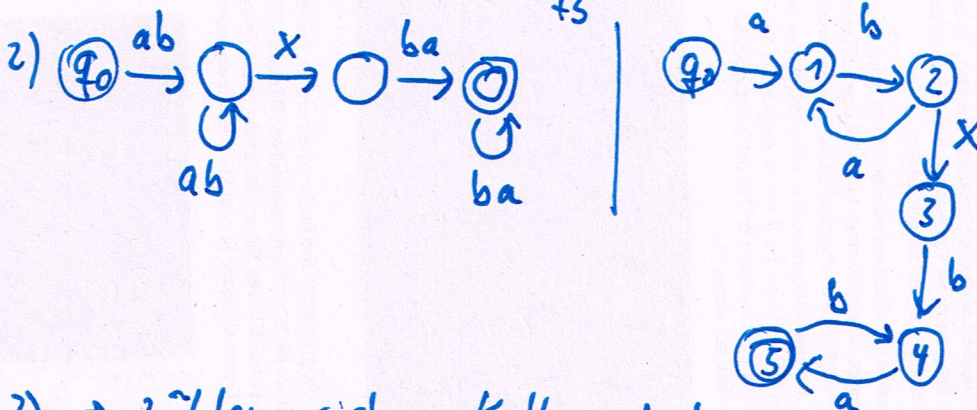 +5
2) q0 ab x ba
ab ba
q0 a 1 b 2
a x
3
b
5 b 4
a